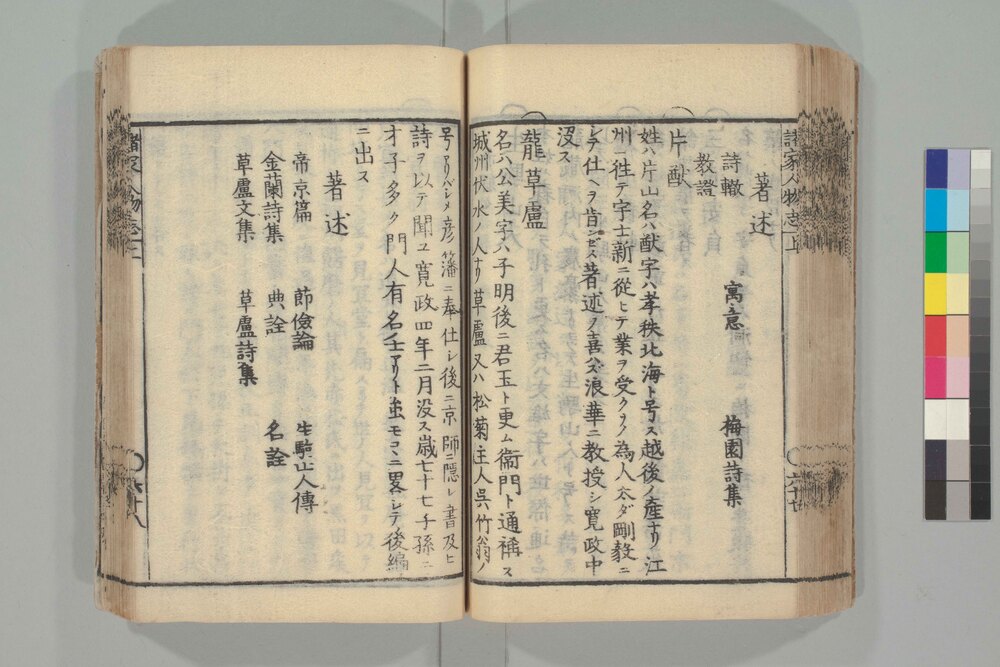 諸家人物志上
著述
詩轍　寓意　梅園詩集
教證
片猷
姓ハ片山名ハ猷字ハ孝秩北海ト号ス越後ノ產ナリ江
州ニ徃テ宇士新ニ從ヒテ業ヲ受クソノ為人太ダ剛毅ニ
シテ仕ヘヲ肯ンゼズ著述ヲ喜バズ浪華ニ教授シ寬政中
没ス
龍草盧
名ハ公美字ハ子明後ニ君玉ト更ム衞門ト通稱ス
城州伏水ノ人ナリ草盧又ハ松菊主人吳竹翁ノ
号アリハシメ彦籓ニ奉仕シ後ニ京師ニ隠レ書及ヒ
詩ヲ以テ聞ユ寬政四年二月没ス歲七十七子孫ニ
才子多ク門人有名ノ士アリト虽モコヽニ畧シテ後編
ニ出ス
著述
帝京篇　節儉論　生駒山人傳
金蘭詩集　典詮　名詮
草盧文集　草盧詩集